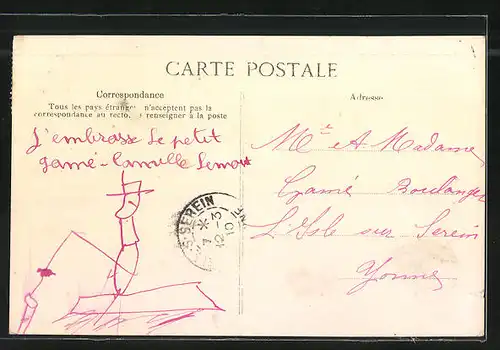 CARTE POSTALE
Correspondance
Tous les pays étrangers n'acceptent pas la
correspondance au recto. renseigner à la poste
J'embrasse Le petit
gamé - Camille
Adresse
Mr et A. Madame
Gamé Boulanger
L'Isle sur Serein
Yonne
SEREIN
12-3
10